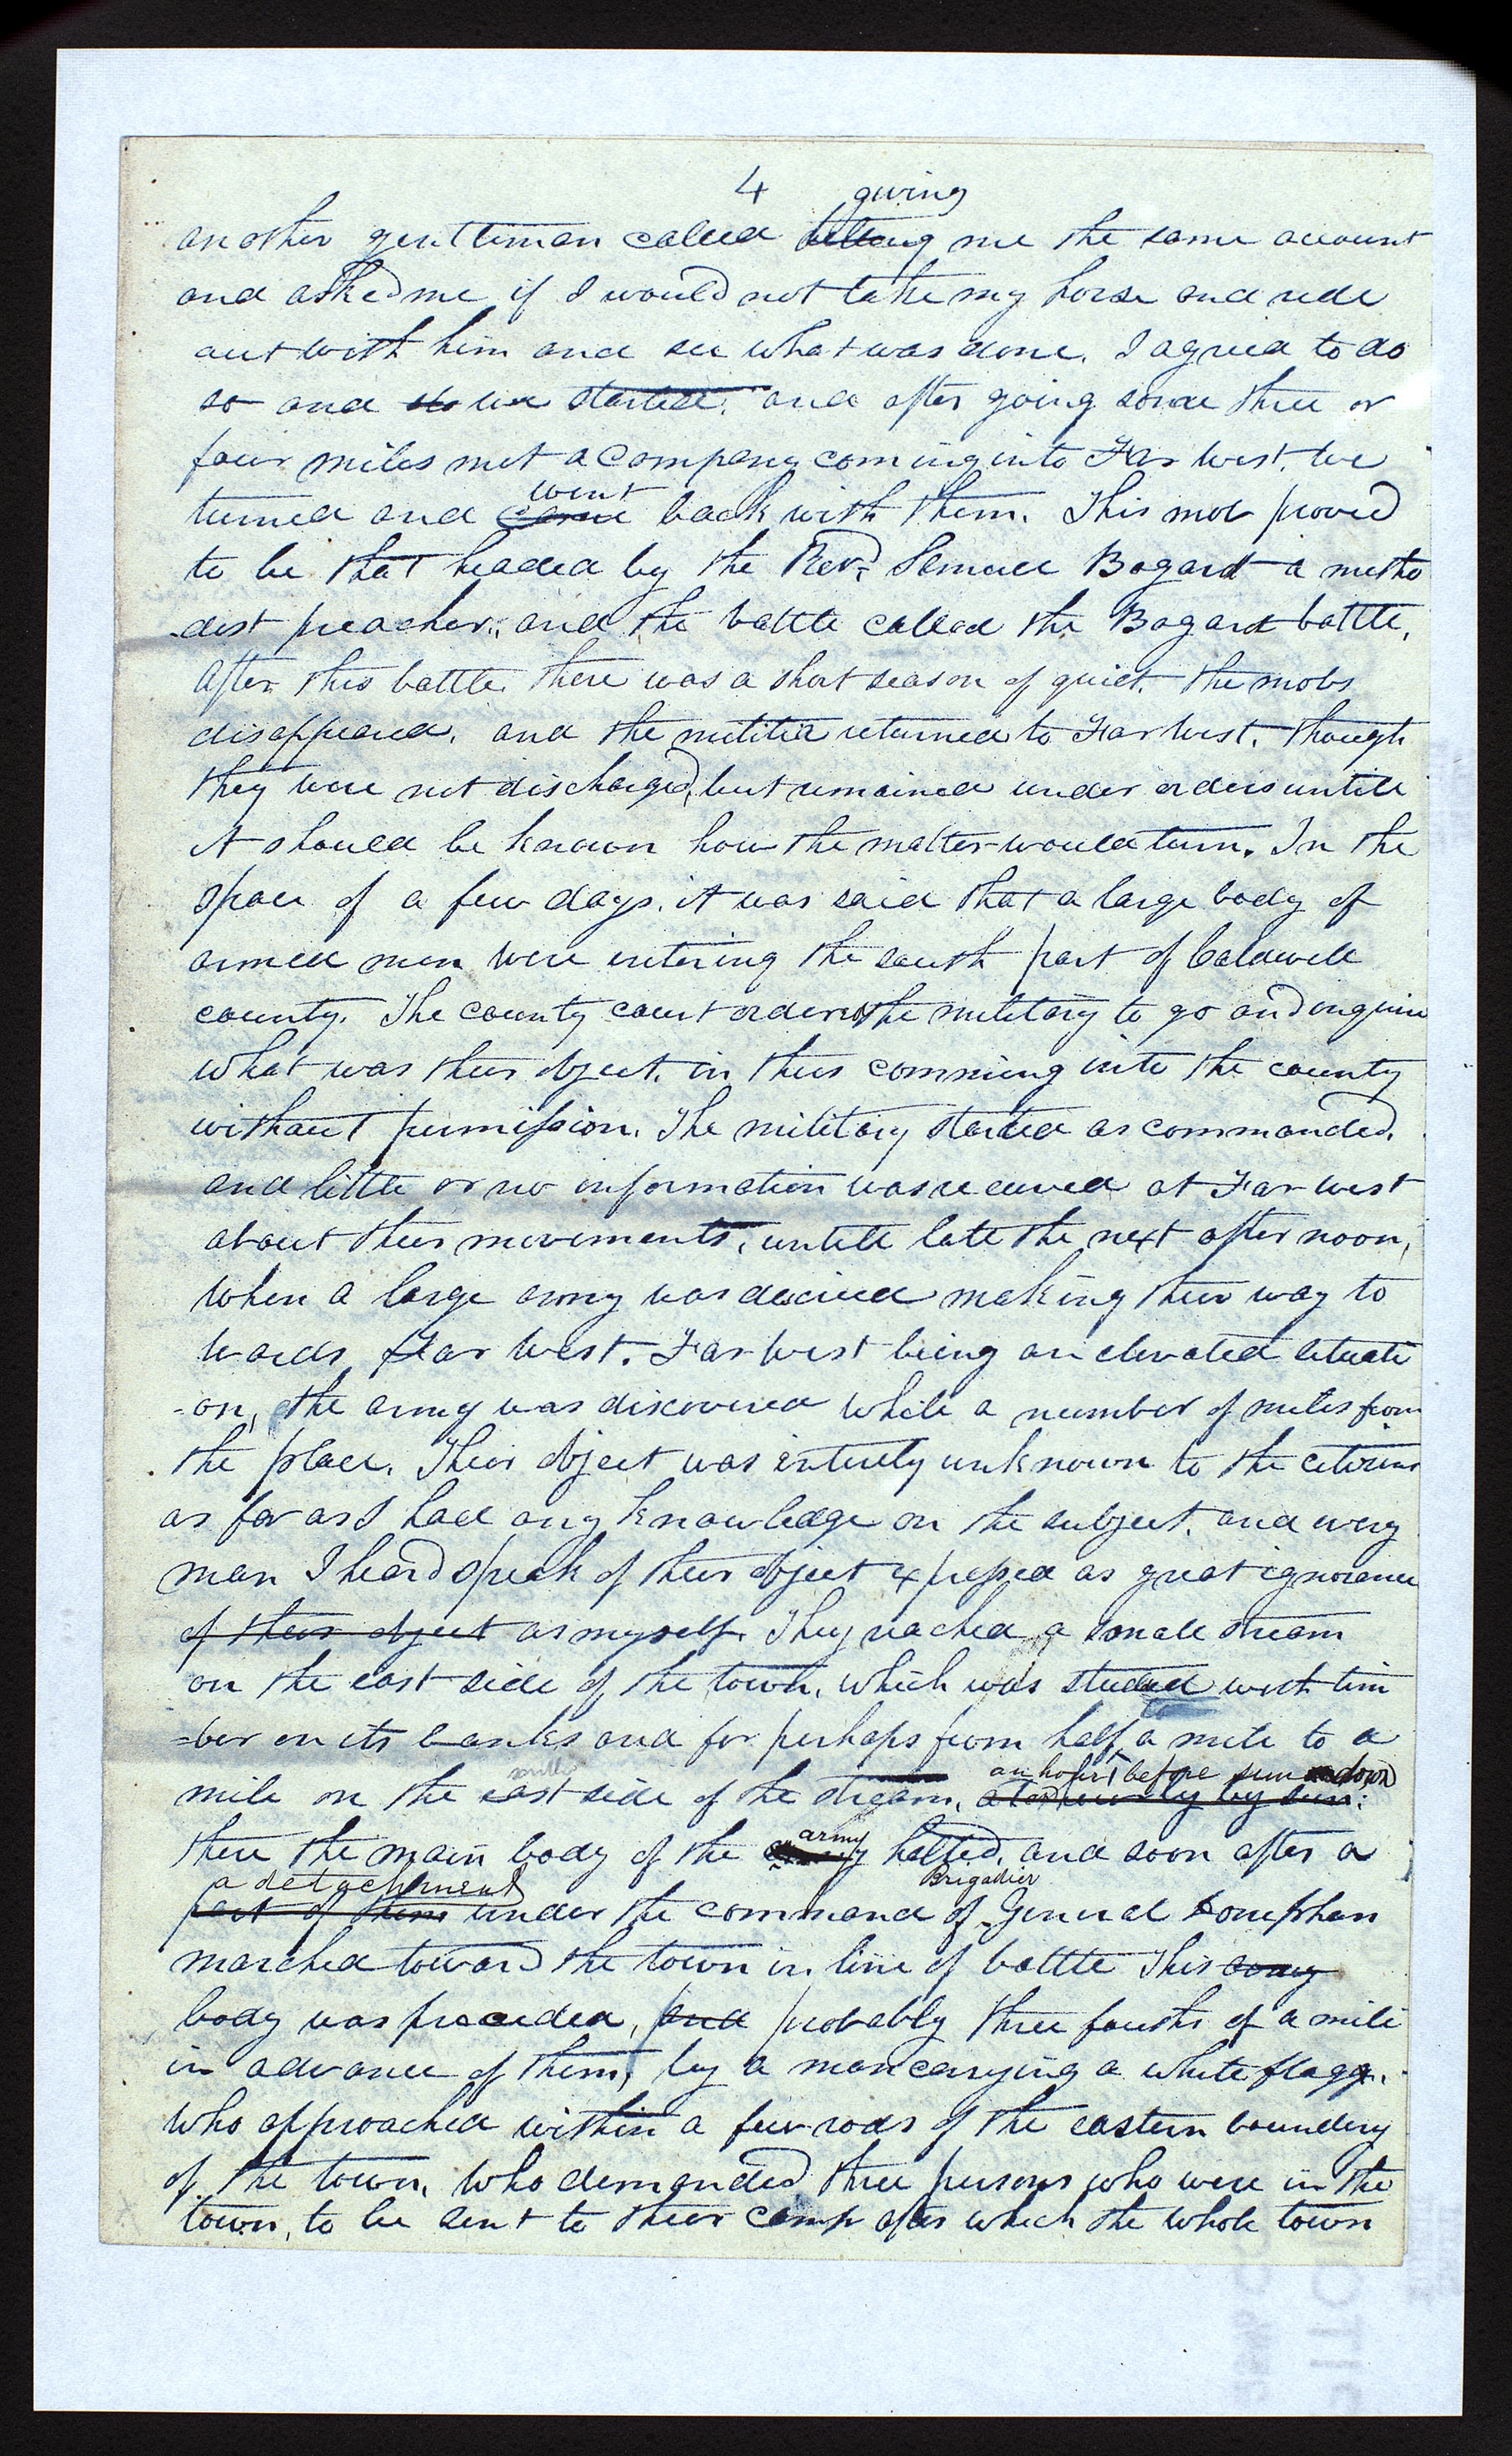 4 giving
another gentleman called telling me the same account
and asked me if I would not take my horse and ride
out with him and see what was done. I agreed to do
so and so we started. and after going some three or
four miles met a company coming into Far West. we
went
turned and came back with them. This mob proved
to be that headed by the Revd. Samuel Bogard a metho
-dist preacher, and the battle called the Bogard battle,
After this battle there was a short season of quiet. the mobs
disappeared, and the militia returned to Far West, though
they were not discharged, but remained under orders untill
it should be known how the matter would turn. In the
space of a few days, it was said that a large body of
armed men were entering the south part of Caldwell
county. The county court ordered the military to go and inquire
what was their object, in thus comming into the county
without permission. The military started as commanded,
and little or no information was received at Far west
about their movements, untill late the next after noon,
when a large army was descried making their way to
wards Far West. Far West being an elevated situati
-on, the army was discovered while a number of miles from
the place. Their object was entirely unknown to the citizens
as far as I had any knowledge on the subject. and every
man I heard speak of their object expressed as great ignorance
of their object as myself. They reached a small stream
on the east side of the town, which was studded with tim
-ber on its banks and for perhaps from half a mile to a
south an hour before sun down
mile on the east side of the stream,
army
there the main body of the halted, and soon after a
a detachment Brigadier
part of them under the command of General Doniphan
marched toward the town in line of battle This army
body was preceeded, and probably three fourths of a mile
in advance of them, by a man carrying a white flagg.
who approached within a few rods of the eastern boundery
of the town, who demanded three persons who were in the
town, to be sent to their camp after which the whole town